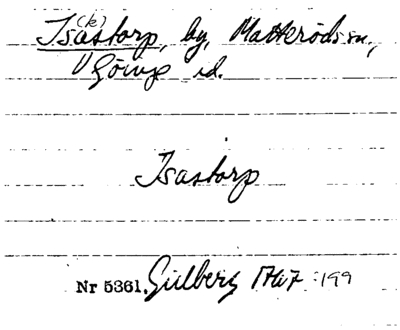 Is(k)astorp, by, Matteröds sn.,
V Göinge hd.
Isastorp
Nr 5361. Gillberg 1767 :199